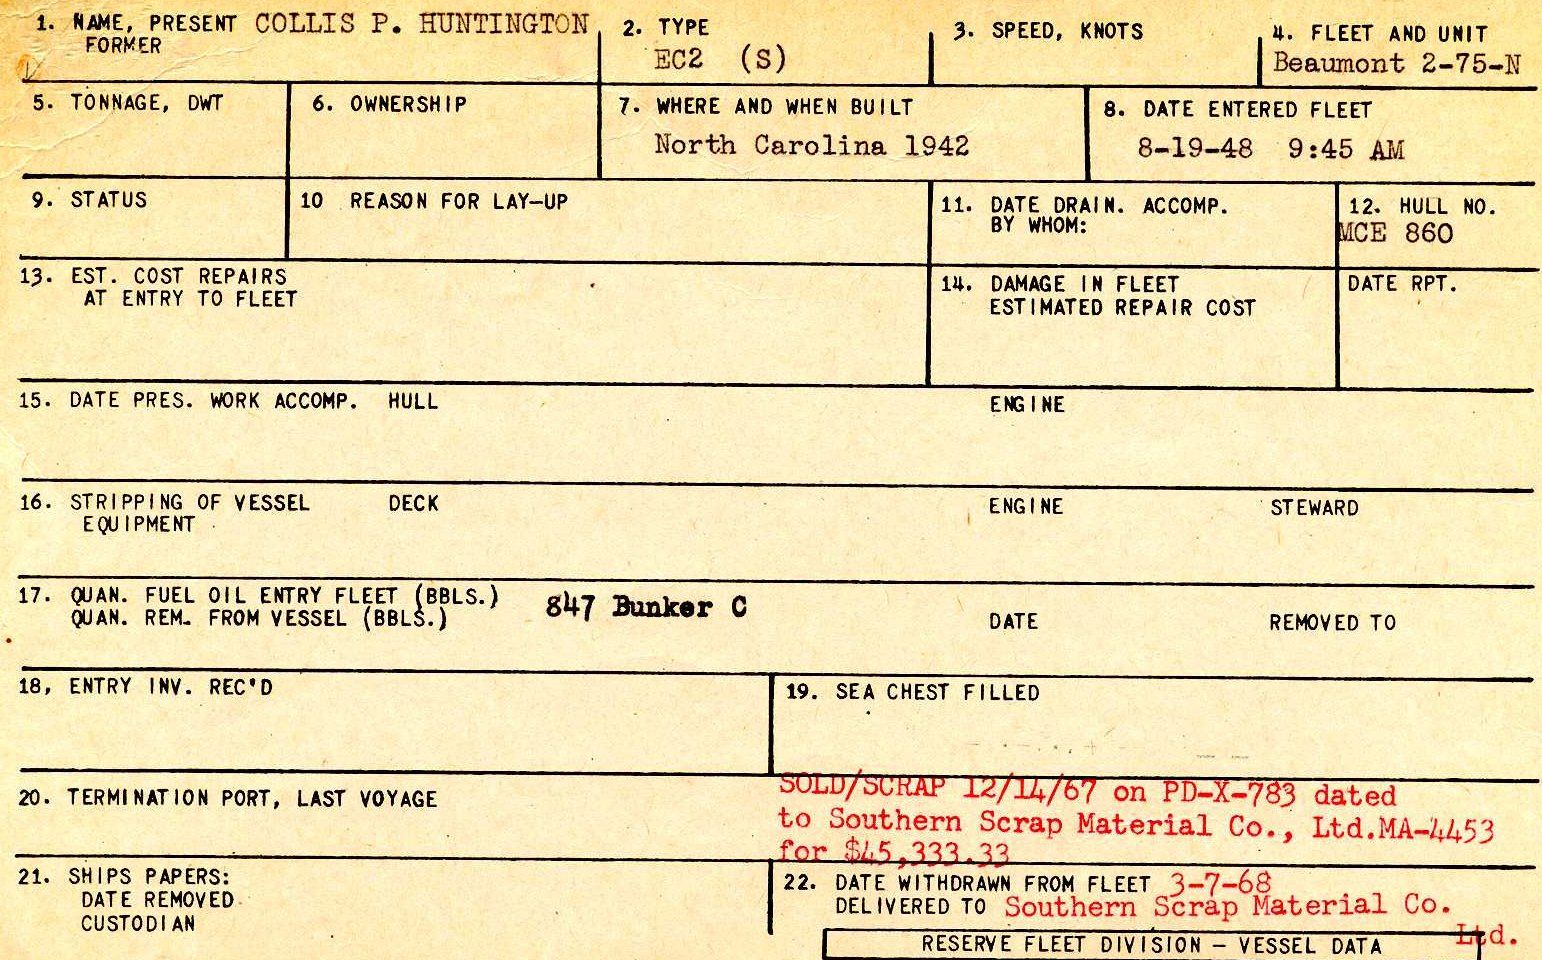 1. NAME, PRESENT COLLIS P. HUNTINGTON
FORMER
2. TYPE
EC2 (S)
3. SPEED, KNOTS
4. FLEET AND UNIT
Beaumont 2-75-N
5. TONNAGE, DWT
6. OWNERSHIP
7. WHERE AND WHEN BUILT
North Carolina 1942
8. DATE ENTERED FLEET
8-19-48 9:45 AM
9. STATUS
10 REASON FOR LAY-UP
11. DATE DRAIN. ACCOMP.
BY WHOM:
12. HULL NO.
MCE 860
13. EST. COST REPAIRS
AT ENTRY TO FLEET
14. DAMAGE IN FLEET
ESTIMATED REPAIR COST
DATE RPT.
15. DATE PRES. WORK ACCOMP. HULL
ENGINE
16. STRIPPING OF VESSEL DECK
EQUIPMENT
ENGINE
STEWARD
17. QUAN. FUEL OIL ENTRY FLEET (BBLS.)
QUAN. REM. FROM VESSEL (BBLS.)
847 Bunker C
DATE
REMOVED TO
18, ENTRY INV. REC'D
19. SEA CHEST FILLED
20. TERMINATION PORT, LAST VOYAGE
SOLD/SCRAP 12/14/67 on PD-X-783 dated
to Southern Scrap Material Co., Ltd.MA-4453
for $45,333.33
21. SHIPS PAPERS:
DATE REMOVED
CUSTODIAN
22. DATE WITHDRAWN FROM FLEET 3-7-68
DELIVERED TO Southern Scrap Material Co.
Ltd.
RESERVE FLEET DIVISION – VESSEL DATA